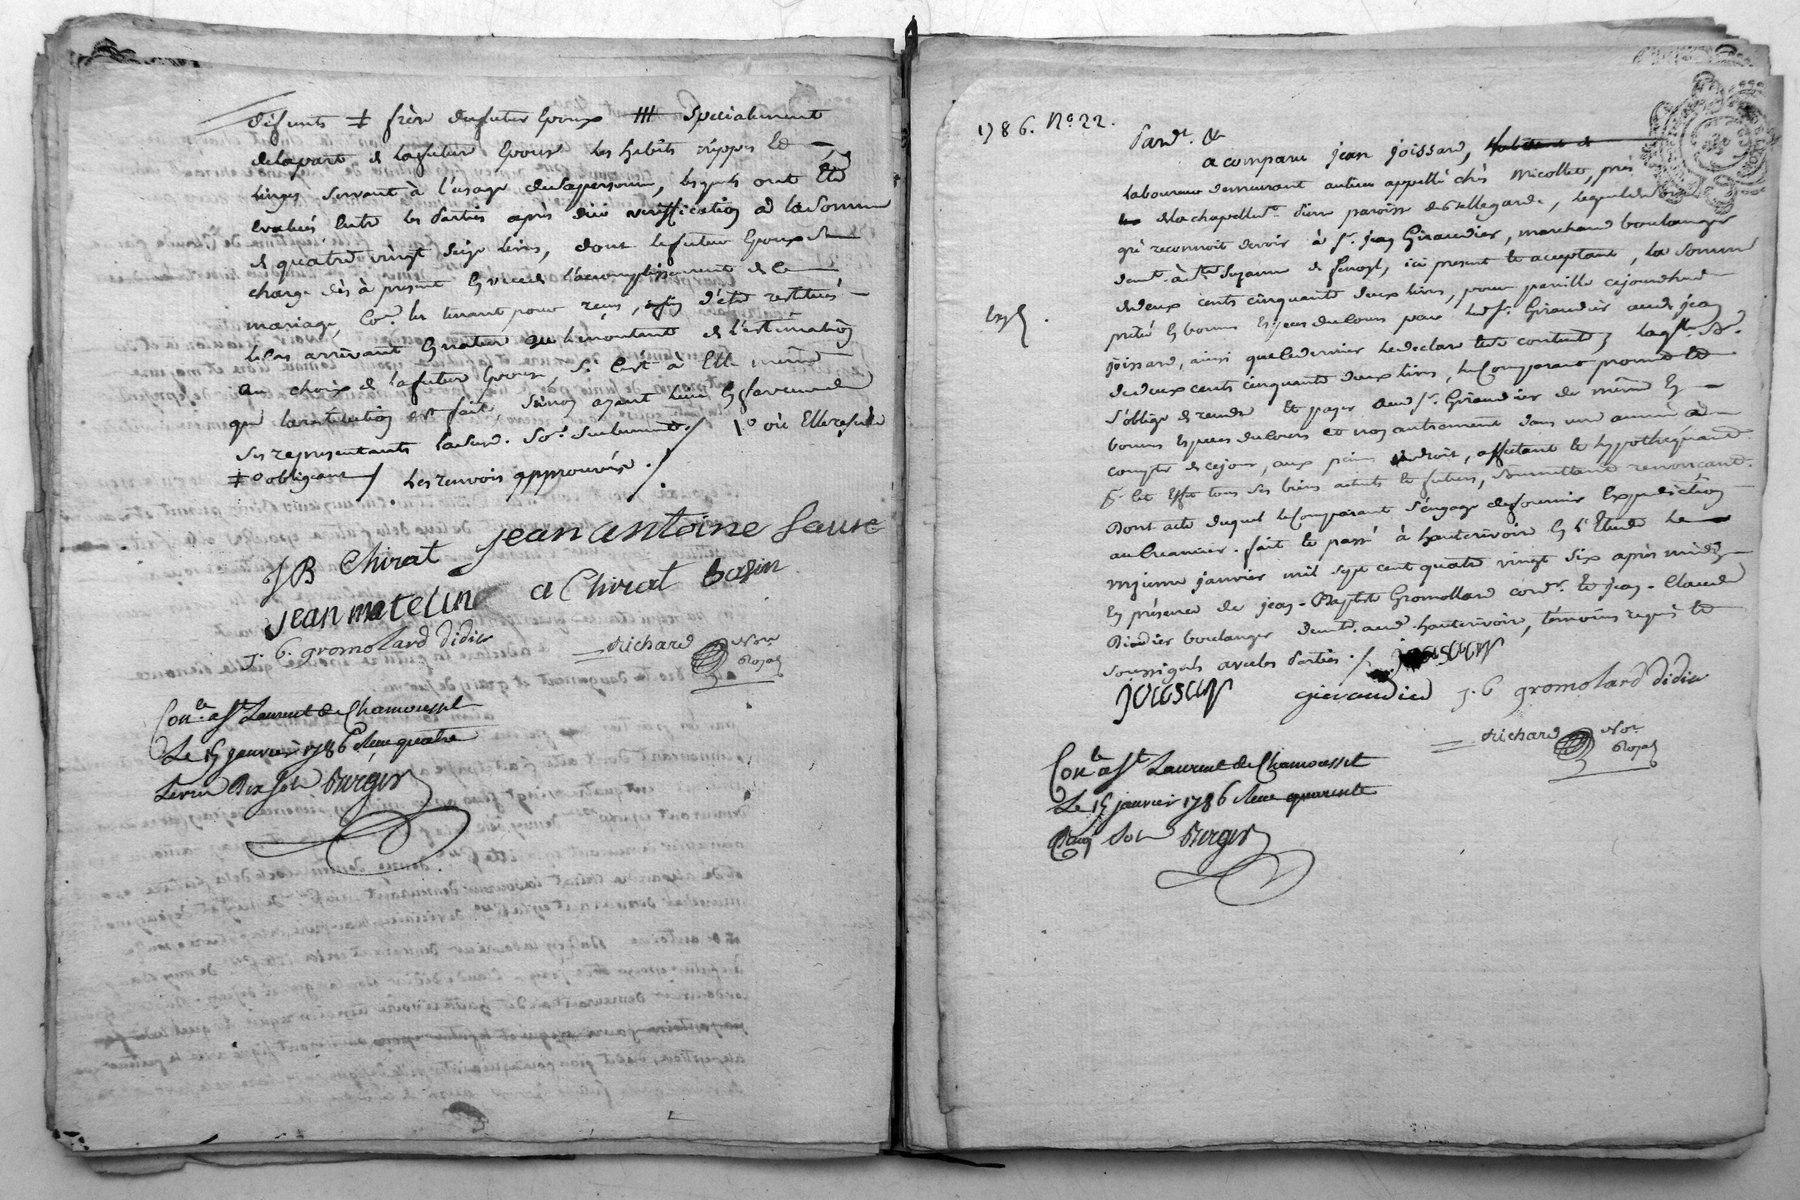 défunts ‡ frère du futur Epoux # Specialement
de la part de la future Epouse les habits nippes et
linges servant à l'usage de sa personne, lesquels ont été
evalués entre les Parties après düe vériffication à la somme
de quatre vingt seize livres, dont le futur Epoux se
charge dès à present en vûe de l'accomplissement de ce
mariage, les tenant pour reçus, d'être restitués
le cas arrivant en nature ou le montant de l'estimation
au choix de la future Epouse, si c'est à Elle même
que la restitution est faite, sinon ayant lieu en faveur de
ses representants seulement / 1° où Elle reside
‡ obligeant / Les renvois approuvés. /
jean antoine faure
JB Chirat
jean matelin a Chirat basin
j. C. gromolard didier
Richard Nore Royal
Con.le a St. Laurent de Chamousset
Le 15 janvier 1786 Reçu quatre
Livres Dix sols Burger
1786. No. 22.
Pard.t &
a comparu jean joissard,
laboureur demeurant au lieu appellé chés Nicollet, près
de la chapelle parroisse de Bellegarde, lequel de
gré reconnoit devoir à Sr. jean Giraudier, marchand boulanger
demt. à Ste Suzanne de ici present et acceptant, la somme
de deux cents cinquante deux livres, pour pareille cejourdhuy
preté en bonnes Especes du cours par led. Sr. Giraudier aud. jean
joissard, ainsi que ce dernier le declare et est content, laquelle So.e
de deux cents cinquante deux livres, le Comparant promet et
s'oblige de rendre et payer aud. Sr. Giraudier de même en
bonnes Especes du cours et non autrement dans une année à
compter de ce jour, aux peines de droit, affectant et hypothéquant
pr. cet effet tous ses biens actuels et futurs, soumettant renonceant.
Dont acte duquel le Comparant s'engage de fournir Expedition
au Creancier. fait et passé à hauterivoire en l'Etude le
onzieme janvier mil sept cent quatre vingt six après midy
En présence de jean-Baptiste Gromollard cord.r et jean-Claude
Didier boulanger demt. aud. hauterivoire, témoins requis et
soussignés avec les Parties. /
Exp.
joiasar giraudier j. C gromolard didier
Richard Nore Royal
Con.le a St Laurent de Chamousset
Le 15 janvier 1786 Reçu quarente
Cinq sols Burger